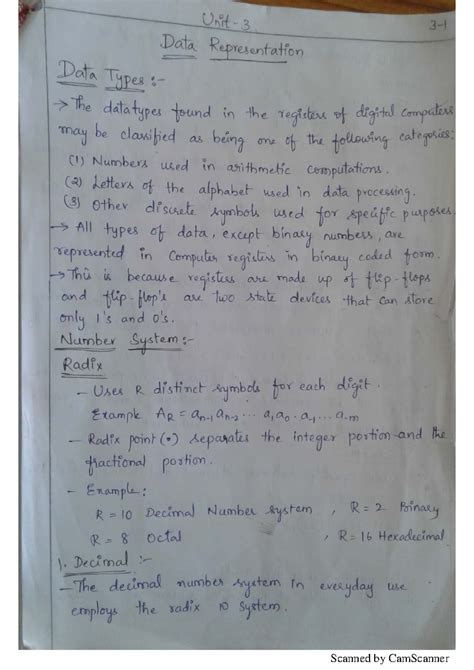 Unit - 3
3-1
Data Representation
Data Types :-
→ The datatypes found in the registers of digital computers
may be classified as being one of the following categories:
(1) Numbers used in arithmetic computations.
(2) Letters of the alphabet used in data processing.
(3) Other discrete symbols used for specific purposes.
→ All types of data, except binary numbers, are
represented in Computer registers in binary coded form.
→ This is because registers are made up of flip-flops
and flip-flop's are two state devices that can store
only 1's and 0's.
Number System :-
Radix
- Uses R distinct symbols for each digit.
Example AR = an-1 an-2 ... a1 a0 . a-1 ... a-m
- Radix point (.) separates the integer portion and the
fractional portion.
- Example :
R = 10 Decimal Number system , R = 2 Binary
R = 8 Octal , R = 16 Hexadecimal
1. Decimal :-
- The decimal number system in everyday use
employs the radix 10 system.
Scanned by CamScanner